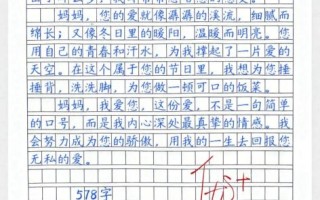 妈妈,您的爱就像潺潺的溪流,细腻而
绵长;又像冬日里的暖阳,温暖而明亮。您
用自己的青春和汗水,为我撑起了一片爱的
天空。在这个属于您的节日里,我想为您捶
捶背,洗洗脚,为您做一顿可口的饭菜。
妈妈,我爱您,这份爱,不是一句简单
的口号,而是我内心深处最真挚的情感。我
会努力成为您的骄傲,用我的一生去回报您
无私的爱。
578字